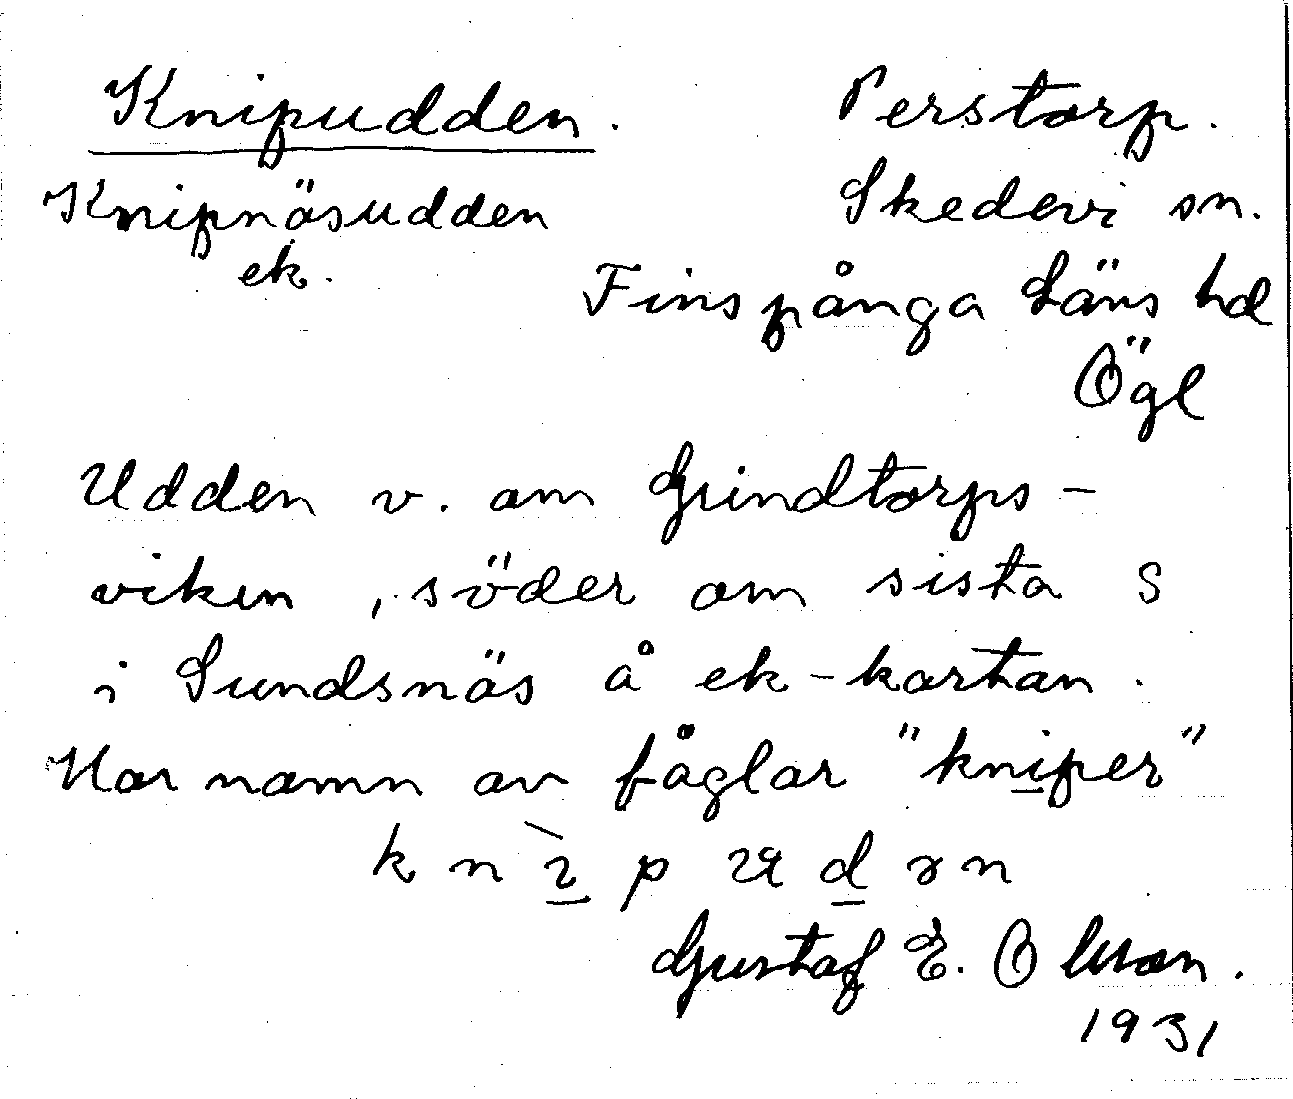 Knipudden. Perstorp.
Knipnäsudden Skedevi sn.
ek. Finspånga Läns hd
Ögl
Udden v. om Grindtorps-
viken, söder om sista S
i Sundsnäs å ek-kartan.
Har namn av fåglar "kniper"
Gustaf E. Olsson.
1931